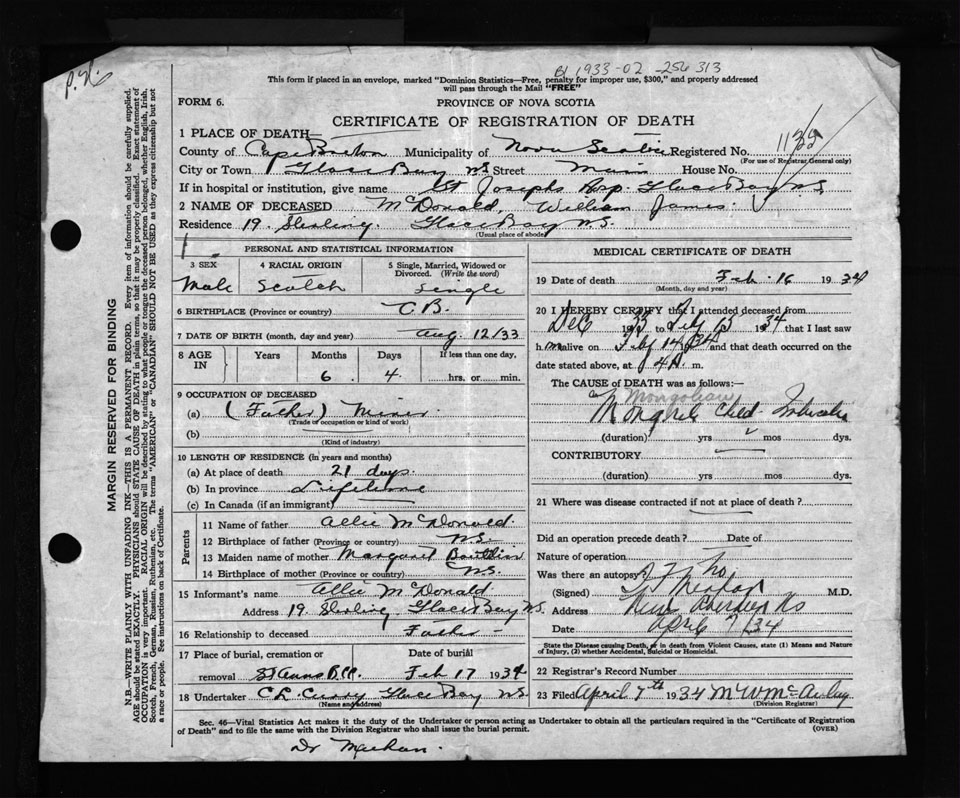 B1 1933-02-256313
This form if placed in an envelope, marked "Dominion Statistics—Free, penalty for improper use, $300," and properly addressed
will pass through the Mail "FREE"
FORM 6.
PROVINCE OF NOVA SCOTIA
CERTIFICATE OF REGISTRATION OF DEATH
1 PLACE OF DEATH—
County of Cape Breton Municipality of Nova Scotia Registered No.
(For use of Registrar General only)
City or Town Glace Bay N.S. Street Main House No.
If in hospital or institution, give name St Josephs Hosp. Glace Bay N.S
2 NAME OF DECEASED McDonald, William James.
Residence 19. Sterling. Glace Bay N.S.
(Usual place of abode)
PERSONAL AND STATISTICAL INFORMATION
3 SEX
4 RACIAL ORIGIN
5 Single, Married, Widowed or Divorced. (Write the word)
Male Scotch Single
6 BIRTHPLACE (Province or country) C.B.
7 DATE OF BIRTH (month, day and year) Aug. 12/33
8 AGE IN
Years Months Days If less than one day,
6. 4. hrs. or min.
9 OCCUPATION OF DECEASED
(a) (Father) Miner
(Trade or occupation or kind of work)
(b)
(Kind of industry)
10 LENGTH OF RESIDENCE (in years and months)
(a) At place of death 21 days.
(b) In province Lifetime
(c) In Canada (if an immigrant)
Parents
11 Name of father Allie McDonald.
12 Birthplace of father (Province or country) N.S.
13 Maiden name of mother Margaret Boutilier
14 Birthplace of mother (Province or country) N.S.
15 Informant's name Allie McDonald
Address 19. Sterling. Glace Bay N.S.
16 Relationship to deceased Father
17 Place of burial, cremation or Date of burial
removal St Anns Feb 17 1934
18 Undertaker C.R. Curry Glace Bay N.S
(Name and address)
MEDICAL CERTIFICATE OF DEATH
19 Date of death Feb. 16 1934
(Month, day and year)
20 I HEREBY CERTIFY that I attended deceased from
Dec 1933 to Feb 15 1934 that I last saw
him alive on Feb 14 1934 and that death occurred on the
date stated above, at m.
The CAUSE OF DEATH was as follows:
Mongolean
Child
(duration) yrs mos dys.
CONTRIBUTORY
(duration) yrs mos dys.
21 Where was disease contracted if not at place of death?
Did an operation precede death? Date of
Nature of operation
Was there an autopsy? No
(Signed) M.D.
Address New Aberdeen NS
Date April 7/34
State the Disease causing Death, or in death from Violent Causes, state (1) Means and Nature
of Injury, (2) whether Accidental, Suicidal or Homicidal.
22 Registrar's Record Number
23 Filed April 7th 1934
(Division Registrar)
Sec. 46—Vital Statistics Act makes it the duty of the Undertaker or person acting as Undertaker to obtain all the particulars required in the "Certificate of Registration
of Death" and to file the same with the Division Registrar who shall issue the burial permit.
(OVER)
MARGIN RESERVED FOR BINDING
N.B.—WRITE PLAINLY WITH UNFADING INK—THIS IS A PERMANENT RECORD. Every item of information should be carefully supplied.
AGE should be stated EXACTLY. PHYSICIANS should STATE CAUSE OF DEATH in plain terms, so that it may be properly classified. Exact statement of
OCCUPATION is very important. RACIAL ORIGIN will be described by stating to what people or tongue the deceased person belonged, whether English, Irish,
Scotch, French, German, Russian, Ruthenian, etc. The terms "AMERICAN" or "CANADIAN" SHOULD NOT BE USED as they express citizenship but not
a race or people. See instructions on back of Certificate.